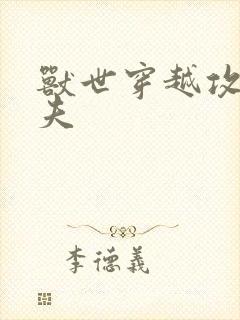 獸世穿越攻
夫
李德義